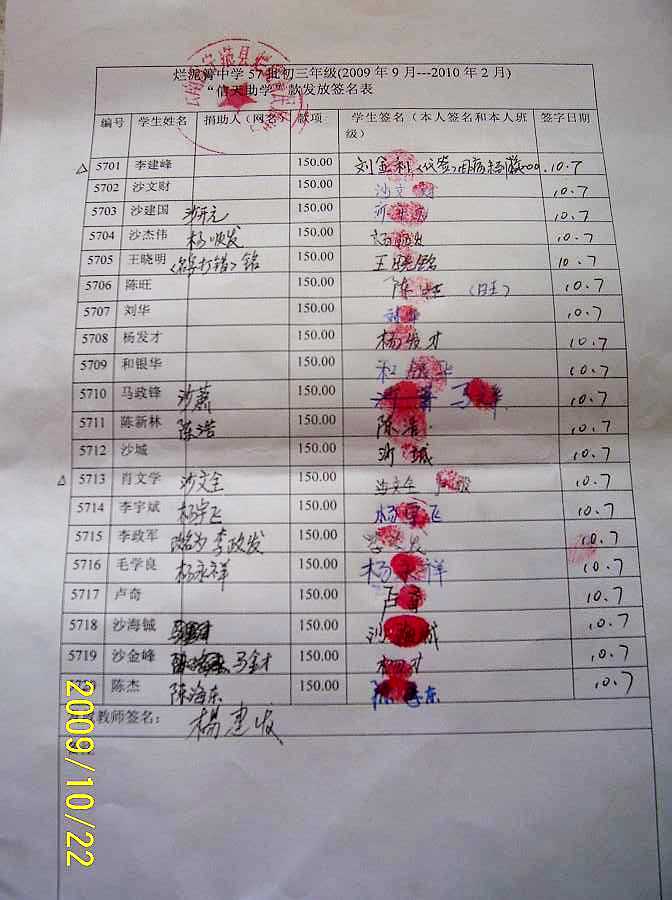 烂泥箐中学57批初三年级(2009年9月---2010年2月)
“信天助学”款发放签名表
编号 学生姓名 捐助人（网名） 款项 学生签名（本人签名和本人班级） 签字日期
5701 李建峰 150.00 刘金利 10.7
5702 沙文财 150.00 沙文财 10.7
5703 沙建国 沙开元 150.00 10.7
5704 沙杰伟 杨顺发 150.00 10.7
5705 王晓明 (名字打错)铭 150.00 王晓铭 10.7
5706 陈旺 150.00 陈旺 (旺) 10.7
5707 刘华 150.00 刘华 10.7
5708 杨发才 150.00 杨发才 10.7
5709 和银华 150.00 和银华 10.7
5710 马政锋 沙萧 150.00 沙萧 10.7
5711 陈新林 陈浩 150.00 陈浩 10.7
5712 沙城 150.00 沙城 10.7
5713 肖文学 沙文全 150.00 10.7
5714 李宇斌 杨宇飞 150.00 杨宇飞 10.7
5715 李政军 改名为李政发 150.00 10.7
5716 毛学良 杨永祥 150.00 杨永祥 10.7
5717 卢奇 150.00 10.7
5718 沙海铖 150.00 10.7
5719 沙金峰 马金才 150.00 10.7
陈杰 陈海东 150.00 陈海东 10.7
教师签名： 杨建收
2009/10/22